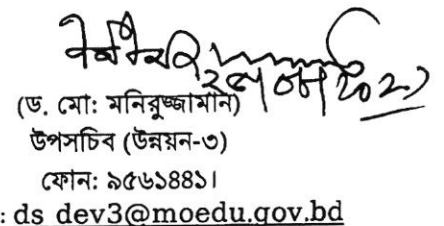 (ড. মো: মনিরুজ্জামান)
উপসচিব (উন্নয়ন-৩)
ফোন: ৯৫৬১৪৪১।
: ds_dev3@moedu.gov.bd